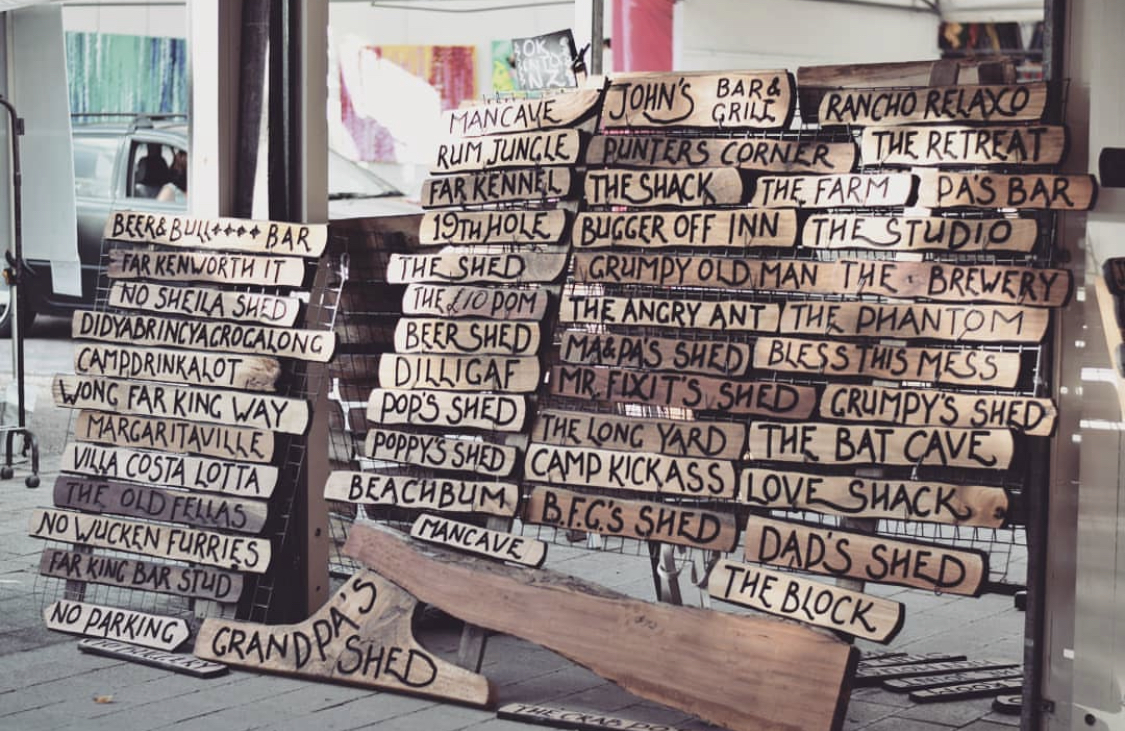 OK
INTO
NZ
BEER & BULL++++ BAR
FAR KENWORTH IT
NO SHEILA SHED
DIDYABRINGYACROGALONG
CAMPDRINKALOT
WONG FAR KING WAY
MARGARITAVILLE
VILLA COSTA LOTTA
THE OLD FELLAS
NO WUCKEN FURRIES
FAR KING BAR STUD
NO PARKING
GRANDPA'S
SHED
MANCAVE
RUM JUNGLE
FAR KENNEL
19TH HOLE
THE SHED
THE £10 POM
BEER SHED
DILLIGAF
POP'S SHED
POPPY'S SHED
BEACHBUM
MANCAVE
JOHN'S BAR &
GRILL
PUNTERS CORNER
THE SHACK
THE FARM
BUGGER OFF INN
GRUMPY OLD MAN
THE ANGRY ANT
MA & PA'S SHED
MR. FIXIT'S SHED
THE LONG YARD
CAMP KICKASS
B.F.G.'S SHED
RANCHO RELAXO
THE RETREAT
PA'S BAR
THE STUDIO
THE BREWERY
THE PHANTOM
BLESS THIS MESS
GRUMPY'S SHED
THE BAT CAVE
LOVE SHACK
DAD'S SHED
THE BLOCK
THE CRAB